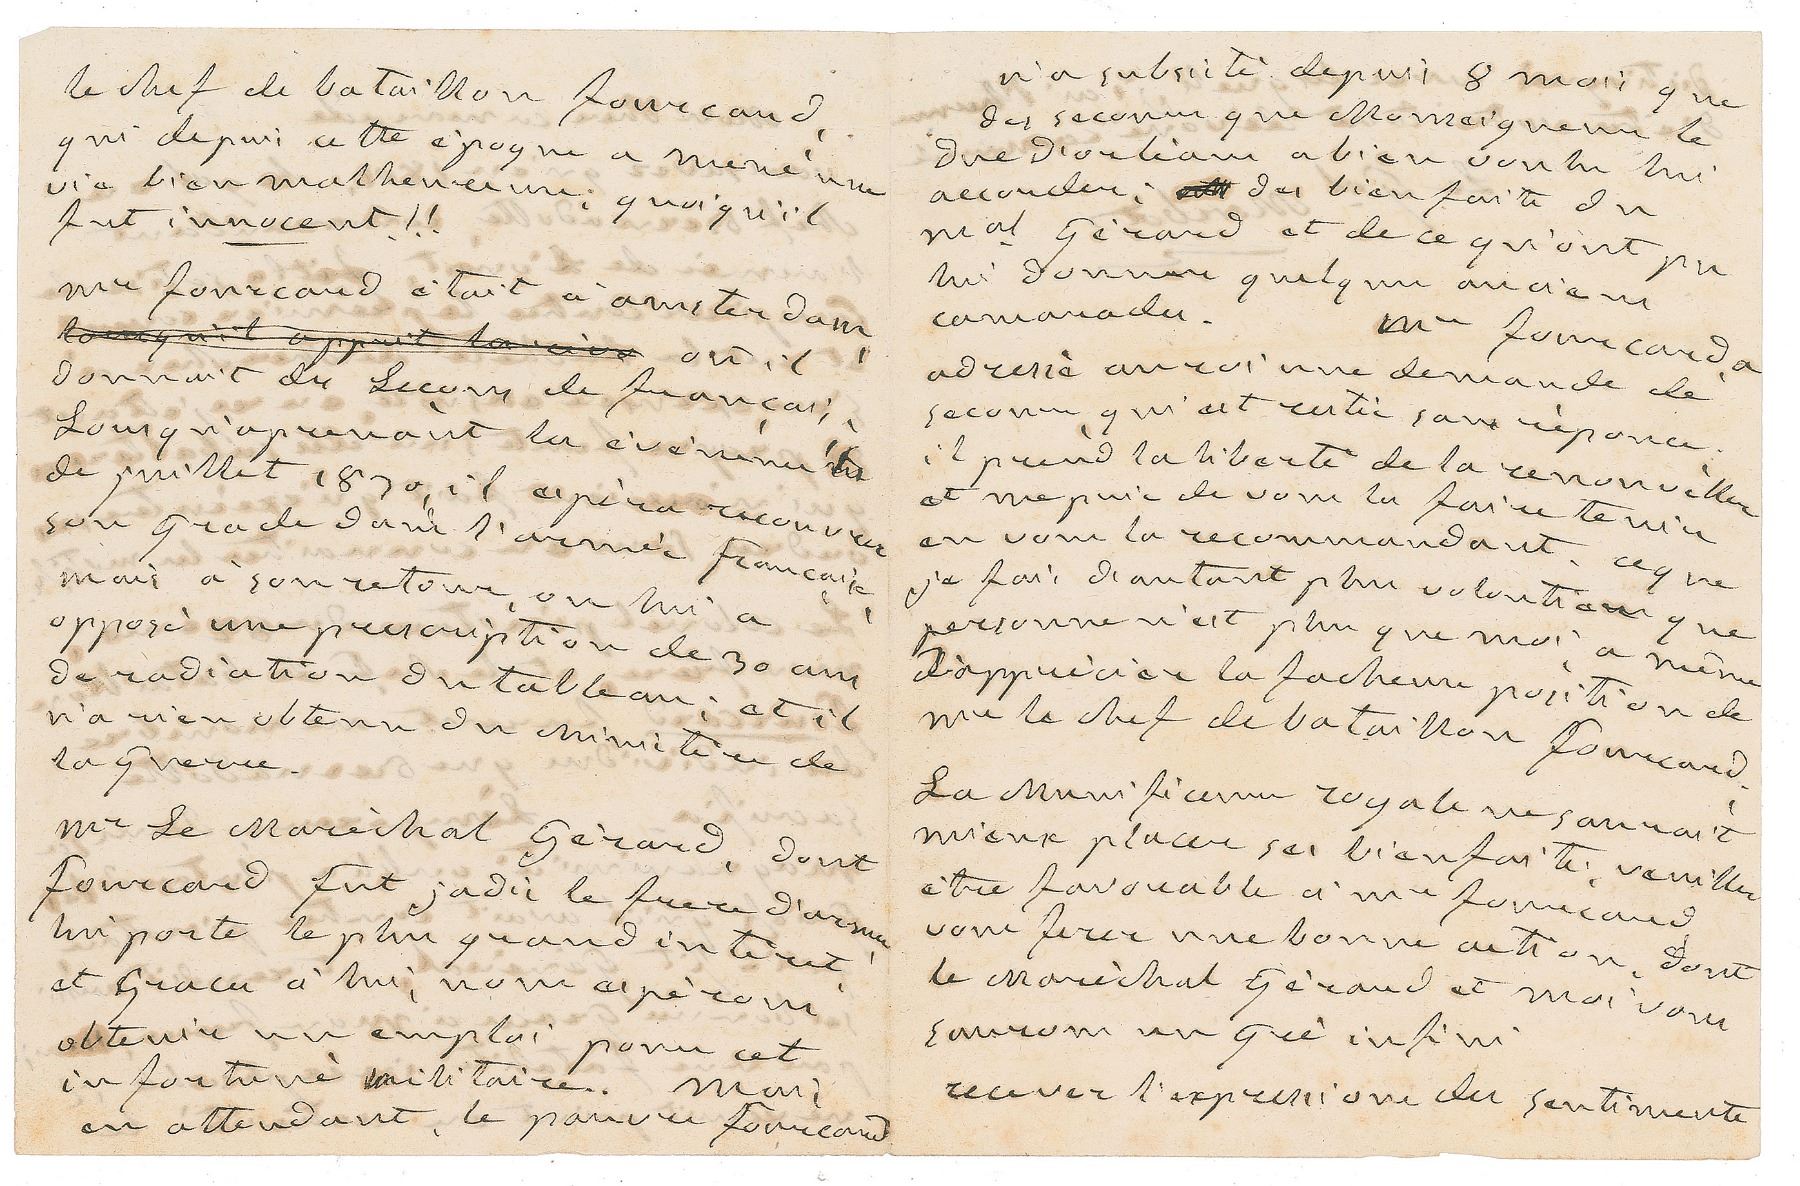 le chef de bataillon fourcaud,
qui depuis cette époque a mené une
vie bien malheureuse; quoiqu'il
fut innocent!!
mr fourcaud était à amsterdam,
lorsqu'il apprit la où il
donnait des Leçons de français;
Lorsqu'aprenant les événemens
de juillet 1830, il espéra recouvrer
son Grade dans l'armée française,
mais à son retour, on lui a
opposé une prescription de 30 ans
de radiation du tableau; et il
n'a rien obtenu du Ministère de
la Guerre.
mr Le Maréchal Gérard, dont
fourcaud fut jadis le frère d'armes
lui porte le plus grand intéret,
et Graces à lui, nous espérons
obtenir un emploi pour cet
infortuné militaire. Mais,
en attendant, le pauvre fourcaud
n'a subsité depuis 8 mois que
des secours que Monseigneur le
Duc D'orléans a bien voulu lui
accorder; des bienfaits du
mal Gérard et de ce qu'ont pu
lui donner quelques anciens
camarades.
Mr fourcaud a
adressé au roi une demande de
secours qui est restée sans réponce.
il prend la liberté de la renouveller
et me prie de vous la faire tenir
en vous la recommandant. ce que
je fais d'autant plus volontiers que
personne n'est plus que moi, a même
D'apprécier la facheuse position de
mr le chef de bataillon fourcaud.
La Munificence royale ne sauroit
mieux placer ses bienfaits, veuillez
être favorable à mr fourcaud,
vous ferez une bonne action, dont
le Maréchal Gérard et moi vous
saurons un gré infini
recevez l'expressione des sentiments